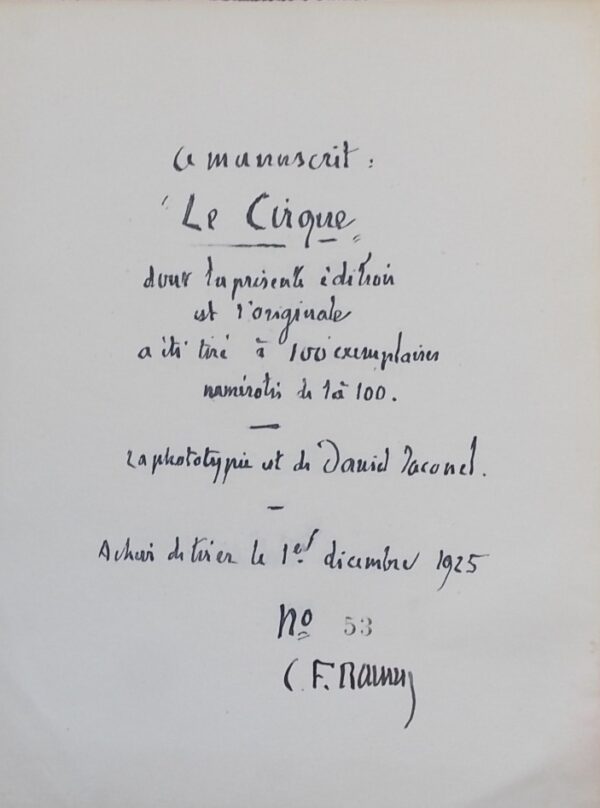 Ce manuscrit :
"Le Cirque"
dont la présente édition
est l'originale
a été tiré à 100 exemplaires
numérotés de 1 à 100.
La phototypie est de Daniel Jacomet.
Achevé de tirer le 1er décembre 1925
No 53
C. F. Ramuz